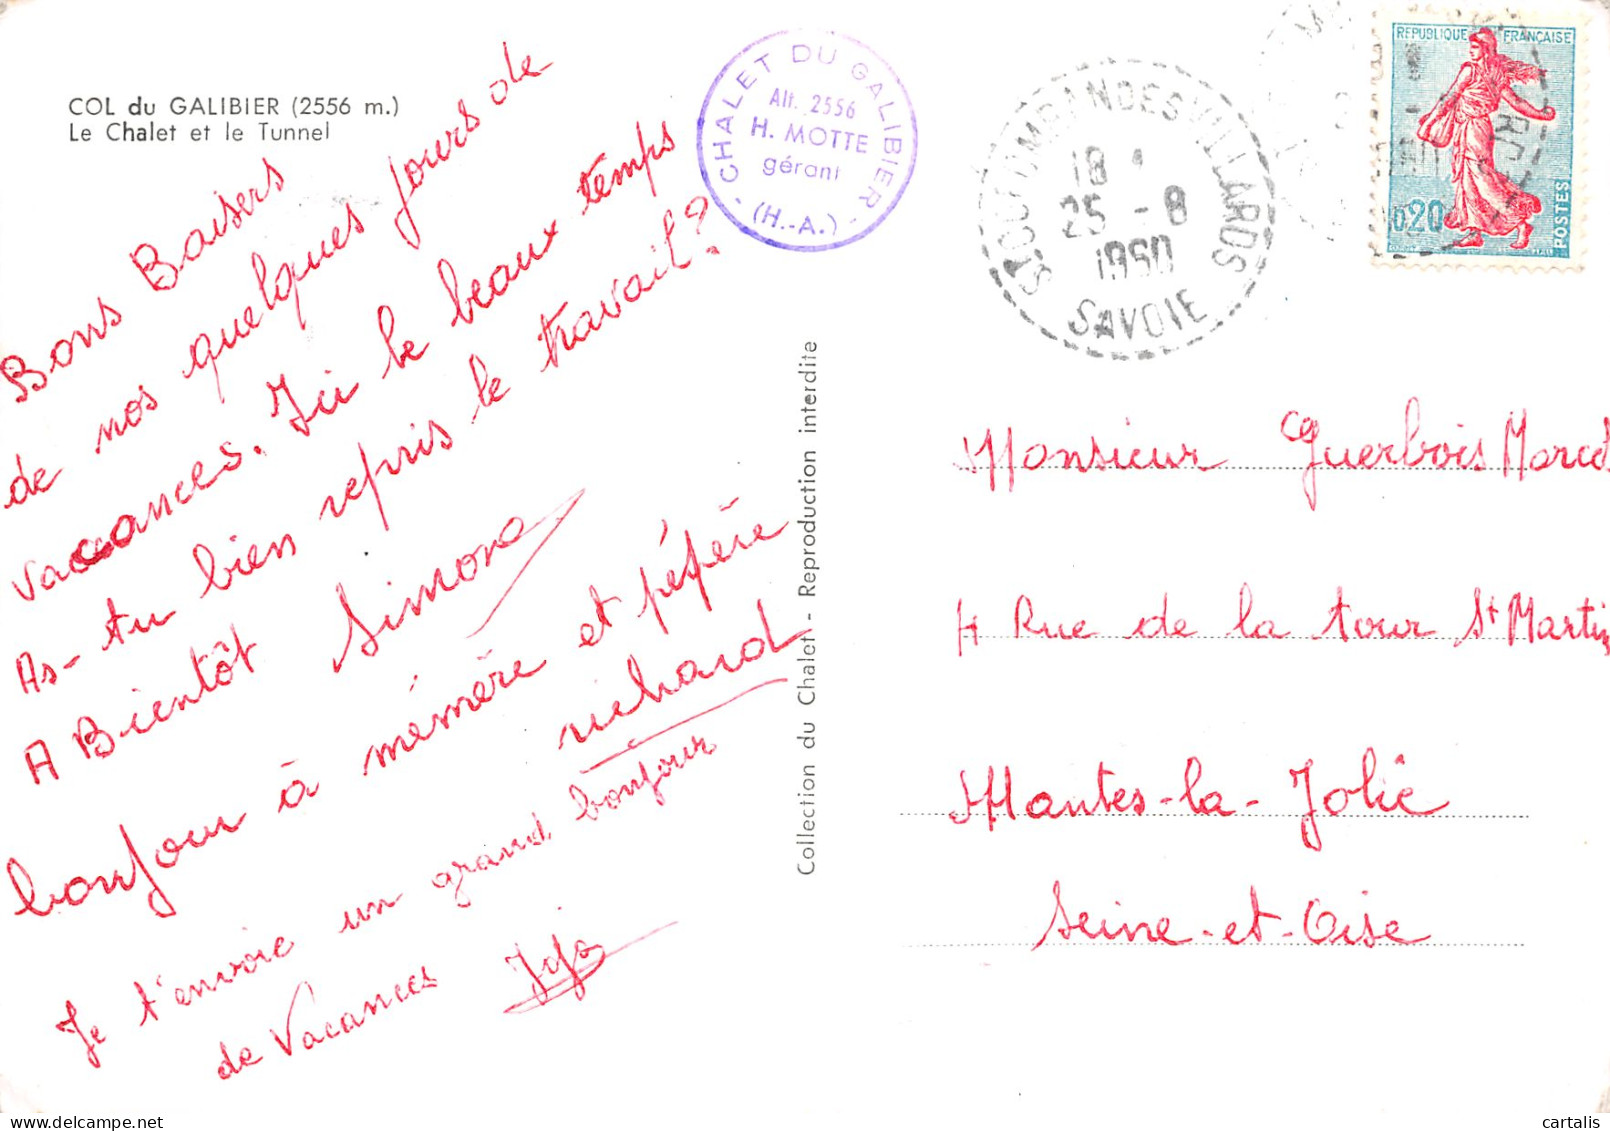 COL du GALIBIER (2556 m.)
Le Chalet et le Tunnel
Bons Baisers
de nos quelques jours de
vacances. Ici le beaux temps
As-tu bien repris le travail?
A Bientôt Simone
bonjour à mémère et pépère
richard
Je t'envoie un grand bonjour
de Vacances Jojo
CHALET DU GALIBIER
Alt. 2556
H. MOTTE
gérant
- (H.-A.) -
Collection du Chalet - Reproduction interdite
ST COLOMBAN DES VILLARDS
18
25 - 8
1960
SAVOIE
REPUBLIQUE FRANÇAISE
0,20
POSTES
Monsieur Guerbois Marcel
4 Rue de la tour St Martin
Mantes-la-Jolie
Seine-et-Oise
delcampe.net
cartalis